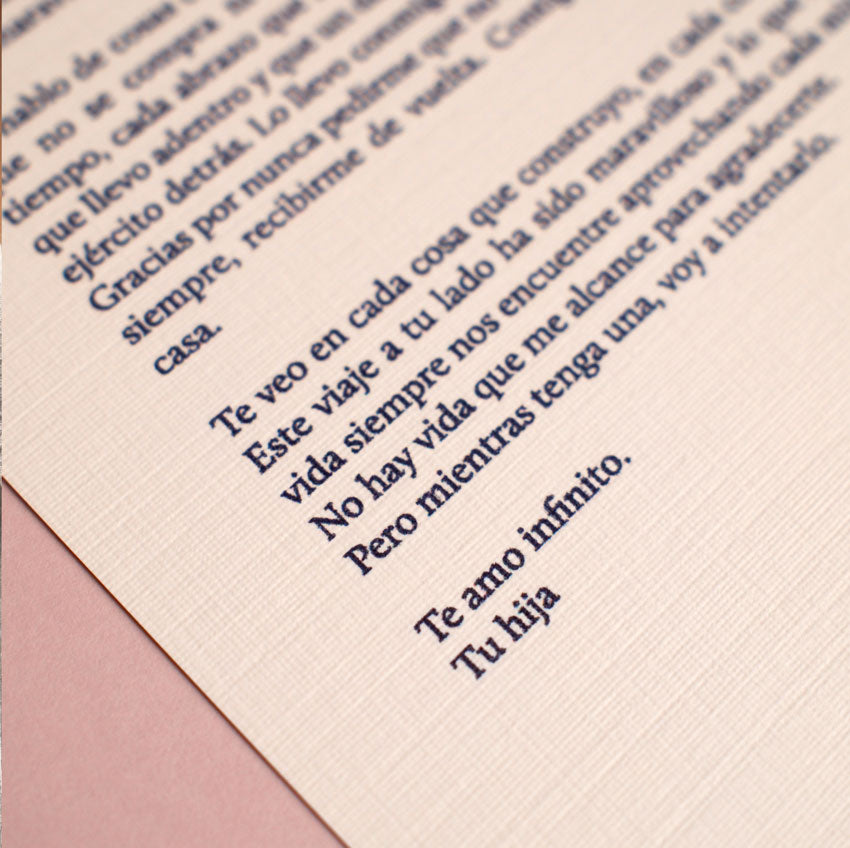 hablo de cosas
que no se compra
tiempo, cada abrazo que
que llevo adentro y que un
ejército detrás. Lo llevo conmigo
Gracias por nunca pedirme que no
siempre, recibirme de vuelta.
casa.
Te veo en cada cosa que construyo, en cada
Este viaje a tu lado ha sido maravilloso y lo que
vida siempre nos encuentre aprovechando cada
No hay vida que me alcance para agradecerte.
Pero mientras tenga una, voy a intentarlo.
Te amo infinito.
Tu hija